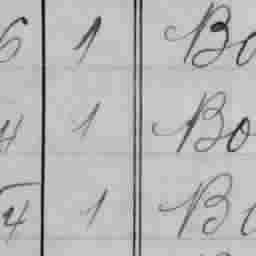 6 1 Bo
4 1 Bo
4 1 Bo